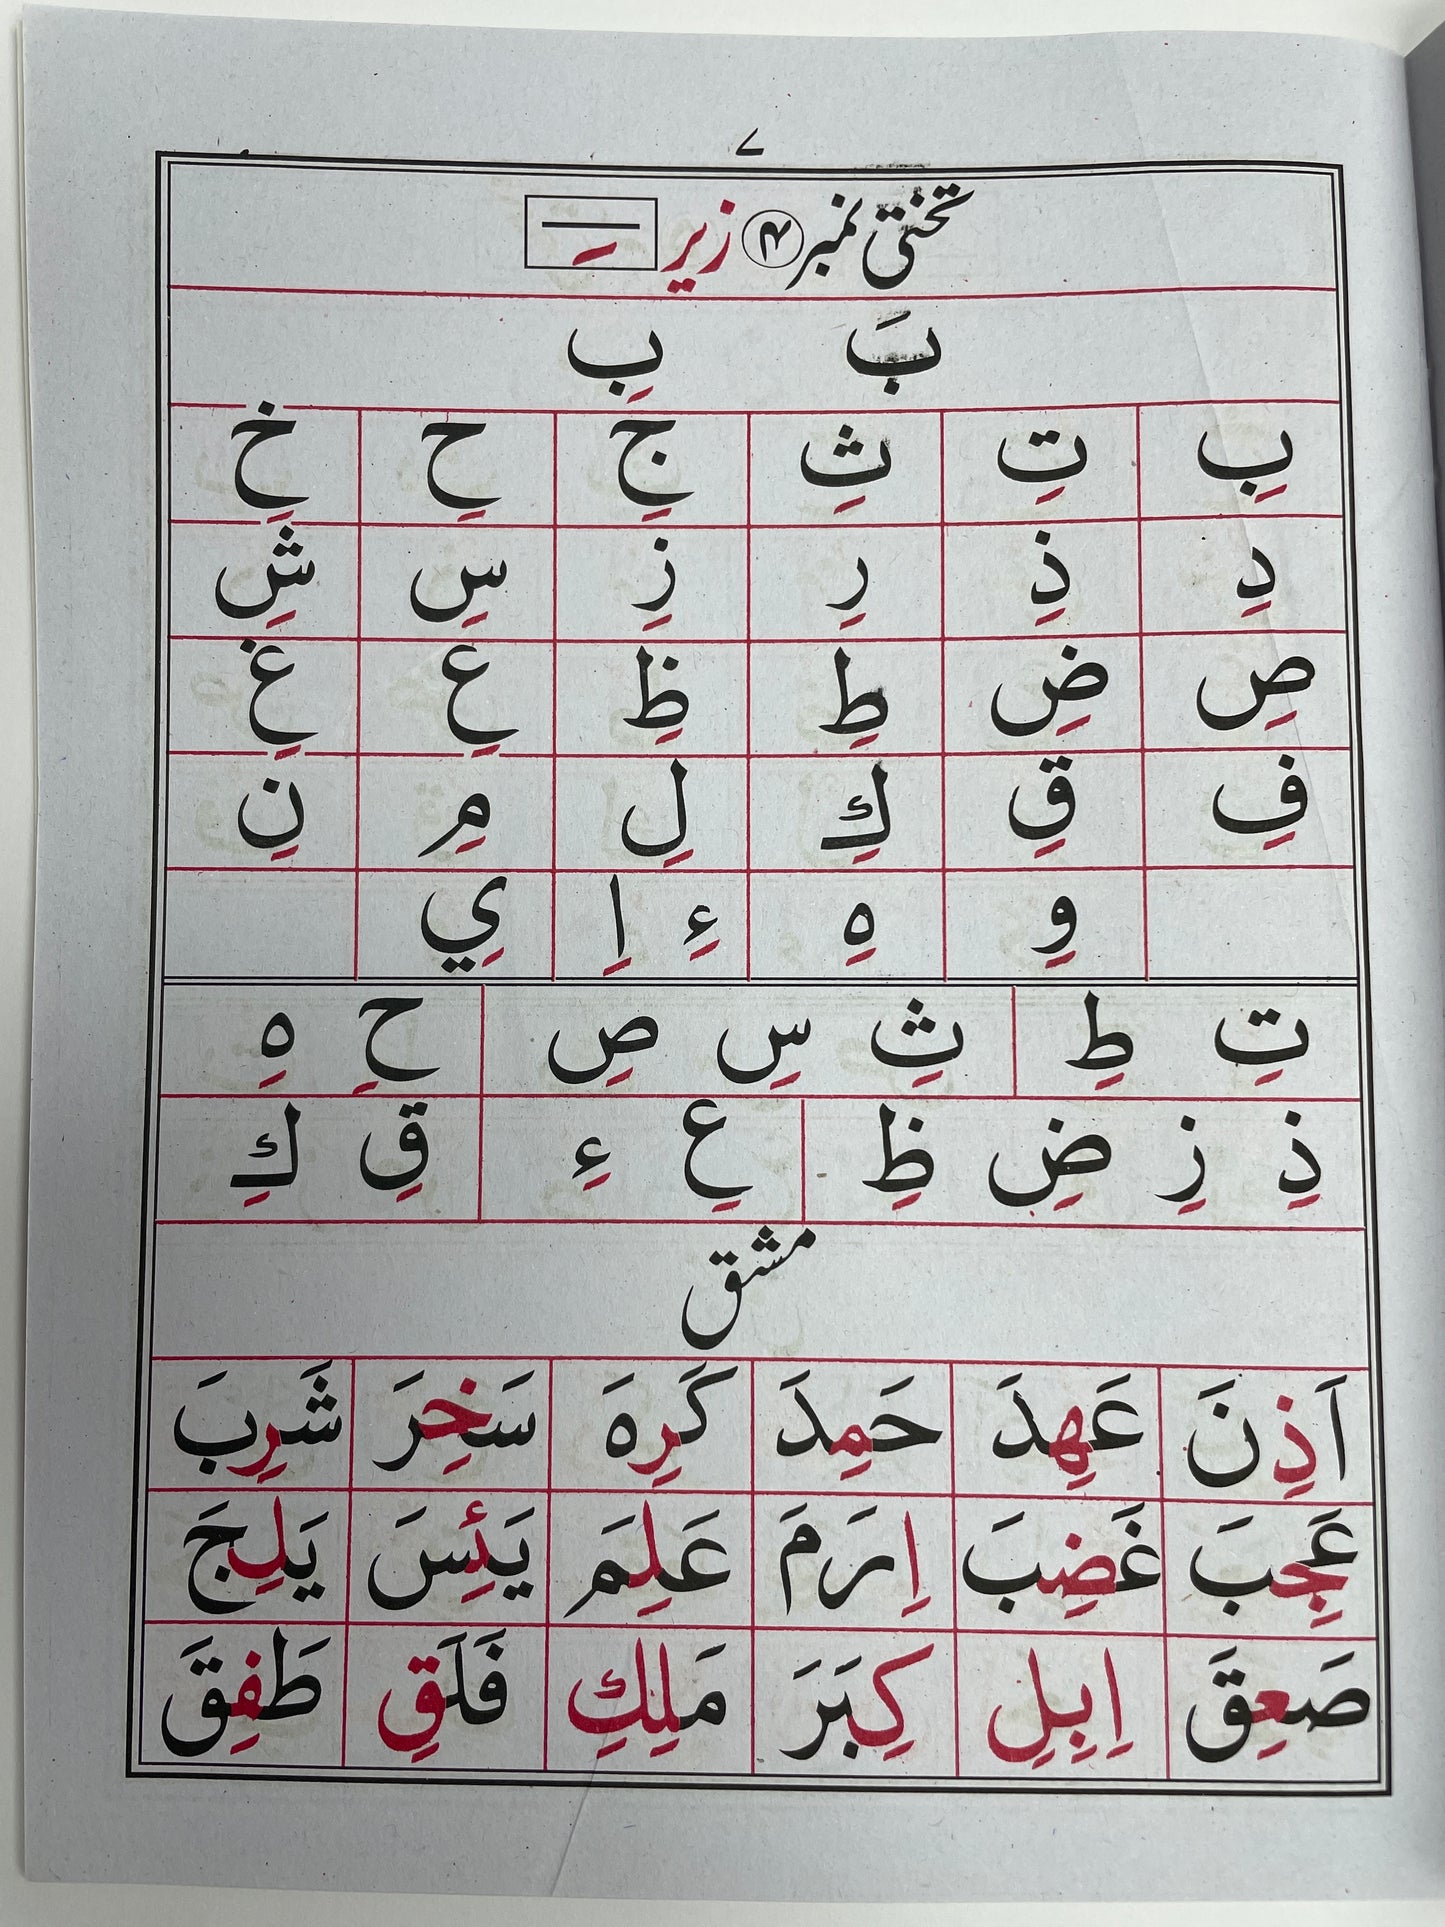 ۷
تختی نمبر ۴ زیر ـِ
بَ بِ
بِ تِ ثِ جِ حِ خِ
دِ ذِ رِ زِ سِ شِ
صِ ضِ طِ ظِ عِ غِ
فِ قِ كِ لِ مِ نِ
وِ هِ ءِ اِ يِ
تِ طِ ثِ سِ صِ حِ هِ
ذِ زِ ضِ ظِ عِ ءِ قِ كِ
مشق
اَذِنَ عَهِدَ حَمِدَ كَرِهَ سَخِرَ شَرِبَ
عَجِبَ غَضِبَ اِرَمَ عَلِمَ يَئِسَ يَلِجَ
صَعِقَ اِبِلِ كِبَرَ مَلِكِ فَلَقِ طَفِقَ